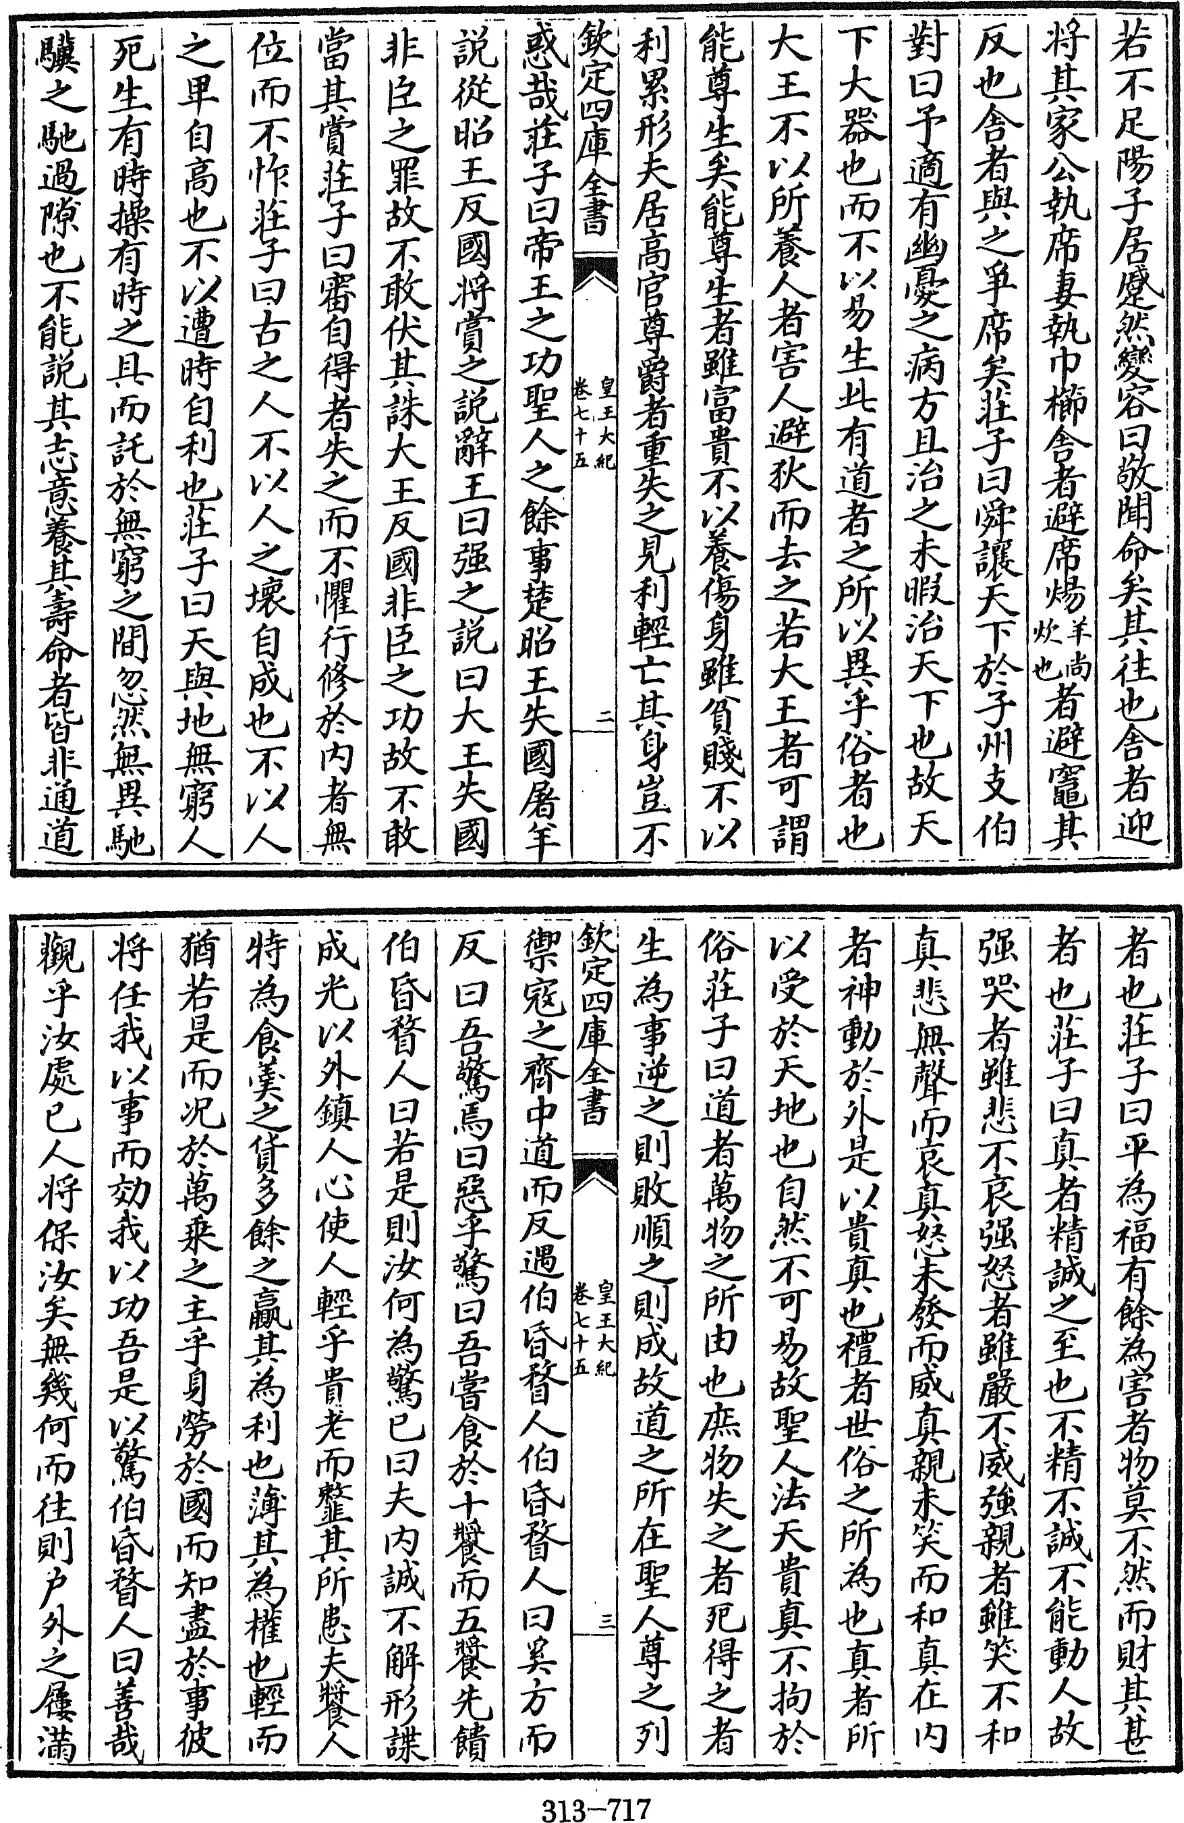 若不足陽子居蹙然變容曰敬聞命矣其往也舍者迎
將其家公執席妻執巾櫛舍者避席煬羊尚炊也者避竈其
反也舍者與之爭席矣莊子曰舜讓天下於子州支伯
對曰予適有幽憂之病方且治之未暇治天下也故天
下大器也而不以易生此有道者之所以異乎俗者也
大王不以所養人者害人避狄而去之若大王者可謂
能尊生矣能尊生者雖富貴不以養傷身雖貧賤不以
利累形夫居高官尊爵者重失之見利輕亡其身豈不
欽定四庫全書
皇王大紀
卷七十五
二
惑哉莊子曰帝王之功聖人之餘事楚昭王失國屠羊
説從昭王反國將賞之説辭王曰强之説曰大王失國
非臣之罪故不敢伏其誅大王反國非臣之功故不敢
當其賞莊子曰審自得者失之而不懼行修於内者無
位而不怍莊子曰古之人不以人之壞自成也不以人
之卑自高也不以遭時自利也莊子曰天與地無窮人
死生有時操有時之具而託於無窮之間忽然無異馳
驥之馳過隙也不能説其志意養其壽命者皆非通道
者也莊子曰平為福有餘為害者物莫不然而財其甚
者也莊子曰真者精誠之至也不精不誠不能動人故
强哭者雖悲不哀强怒者雖嚴不威強親者雖笑不和
真悲無聲而哀真怒未發而威真親未笑而和真在内
者神動於外是以貴真也禮者世俗之所為也真者所
以受於天地也自然不可易故聖人法天貴真不拘於
俗莊子曰道者萬物之所由也庶物失之者死得之者
生為事逆之則敗順之則成故道之所在聖人尊之列
欽定四庫全書
皇王大紀
卷七十五
三
禦寇之齊中道而反遇伯昏瞀人伯昏瞀人曰奚方而
反曰吾驚焉曰惡乎驚曰吾嘗食於十饗而五饗先饋
伯昏瞀人曰若是則汝何為驚已曰夫内誠不解形諜
成光以外鎮人心使人輕乎貴老而韲其所患夫饗人
特為食羮之貨多餘之贏其為利也薄其為權也輕而
猶若是而况於萬乘之主乎身勞於國而知盡於事彼
將任我以事而効我以功吾是以驚伯昏瞀人曰善哉
觀乎汝處已人將保汝矣無幾何而往則户外之屨滿
313-717